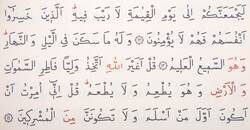 لَيَجْمَعَنَّكُمْ إِلَىٰ يَوْمِ الْقِيَٰمَةِ لَا رَيْبَ فِيهِ ۚ الَّذِينَ خَسِرُوٓا
أَنفُسَهُمْ فَهُمْ لَا يُؤْمِنُونَ ۝ وَلَهُ مَا سَكَنَ فِى الَّيْلِ وَالنَّهَارِ ۚ
وَهُوَ السَّمِيعُ الْعَلِيمُ ۝ قُلْ أَغَيْرَ اللَّهِ أَتَّخِذُ وَلِيًّا فَاطِرِ السَّمَٰوَٰتِ
وَالْأَرْضِ وَهُوَ يُطْعِمُ وَلَا يُطْعَمُ ۗ قُلْ إِنِّىٓ أُمِرْتُ أَنْ
أَكُونَ أَوَّلَ مَنْ أَسْلَمَ ۖ وَلَا تَكُونَنَّ مِنَ الْمُشْرِكِينَ ۝